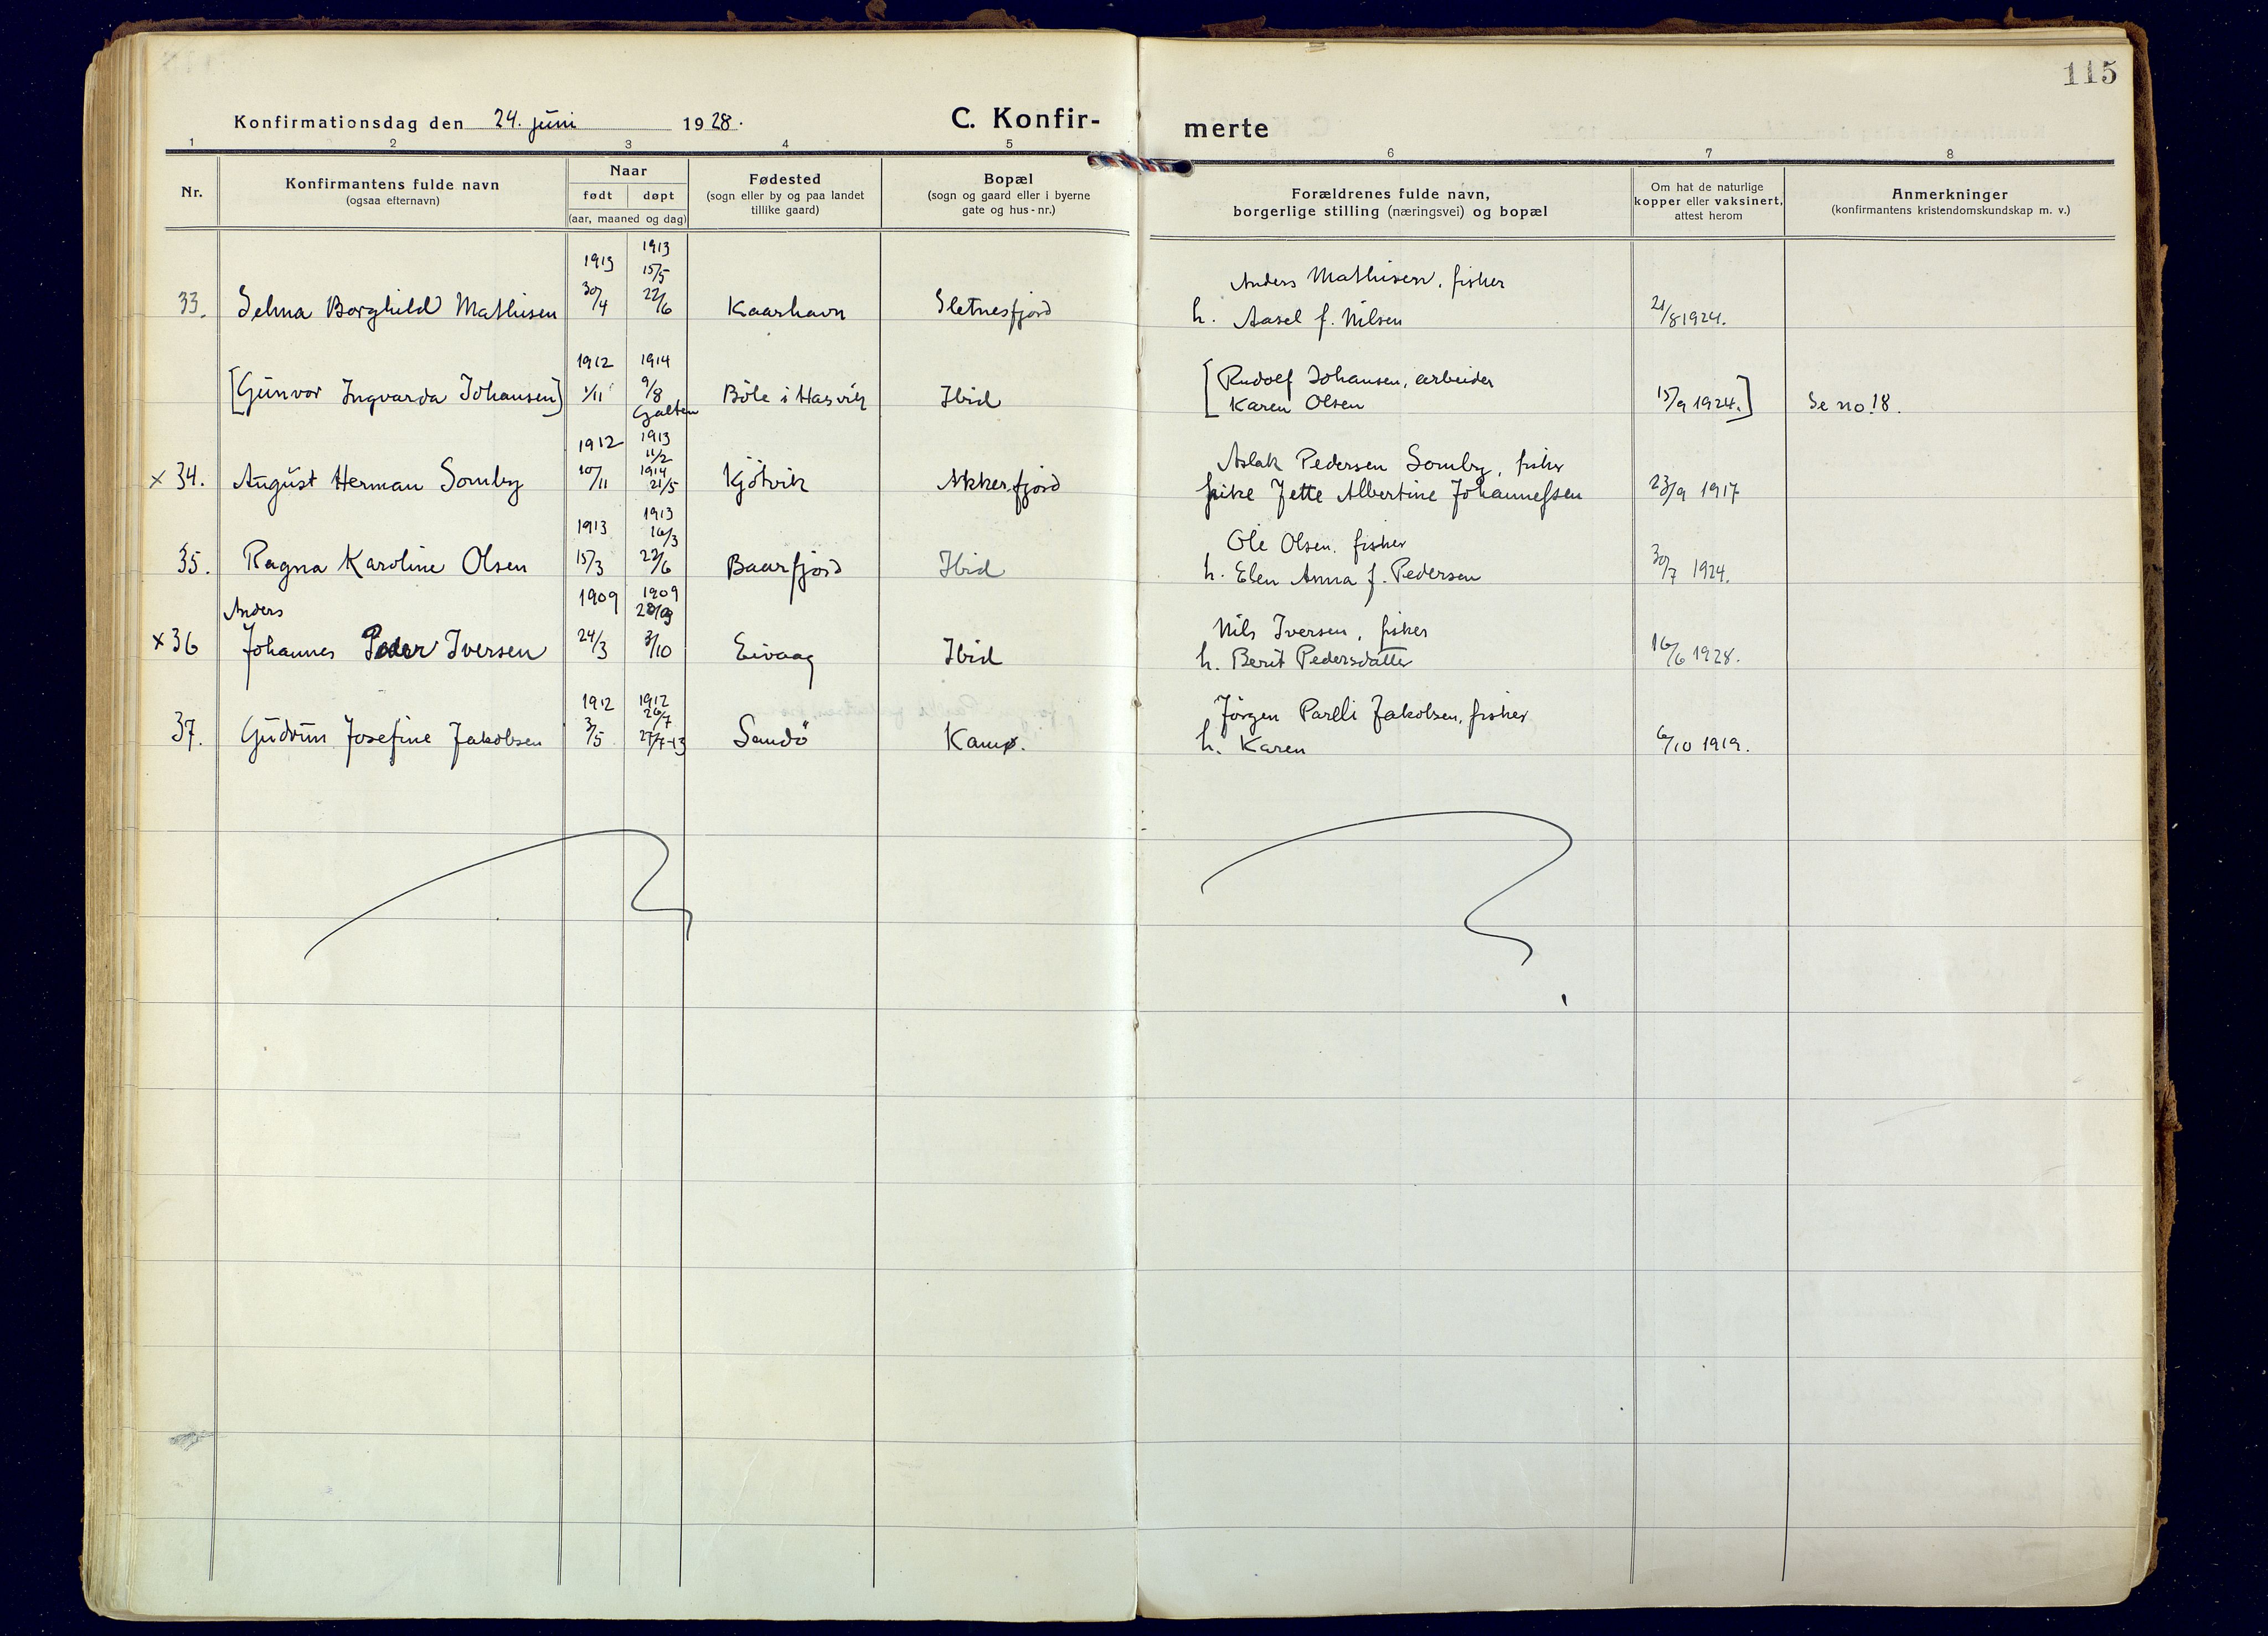 115
Konfirmationsdag den 24. juni 1928.
C. Konfir-
merte
1 2 3 4 5 6 7 8
Nr.
Konfirmantens fulde navn
(ogsaa efternavn)
Naar
født døpt
(aar, maaned og dag)
Fødested
(sogn eller by og paa landet
tillike gaard)
Bopæl
(sogn og gaard eller i byerne
gate og hus-nr.)
Forældrenes fulde navn,
borgerlige stilling (næringsvei) og bopæl
Om hat de naturlige
kopper eller vaksinert,
attest herom
Anmerkninger
(konfirmantens kristendomskundskap m. v.)
1913 1913
15/5
Anders Mathisen, fisker
33. Selma Borghild Mathisen 30/4 22/6 Kaarhavn Sletnesfjord h. Aasel f. Nilsen 21/8 1924.
1912 1914
[Rudolf Johansen, arbeider
[Gunvor Ingvarda Johansen] 1/11 9/8 Böle i Hasvik Ibid Karen Olsen 15/9 1924.] Se no. 18.
Galten
1912 1913
11/2
Aslak Pedersen Somby, fisker
x 34. August Herman Somby 10/11 1914 21/5 Kjötvik Akkerfjord pike Jette Albertine Johannessen 23/9 1917
1913 1913
16/3
Ole Olsen. fisker
35. Ragna Karoline Olsen 15/3 22/6 Baarfjord Ibid h. Elen Anna f. Pedersen 30/7 1924.
Anders 1909 1909
Nils Iversen, fisker
x 36 Johannes Peder Iversen 24/3 3/10 Eivaag Ibid h. Berit Pedersdatter 16/6 1928.
1912 1912
26/7
Jörgen Parelli Jakobsen, fisker
37. Gudrun Josefine Jakobsen 3/5 27/7-13 Sandö Kamø. h. Karen 6/10 1919.